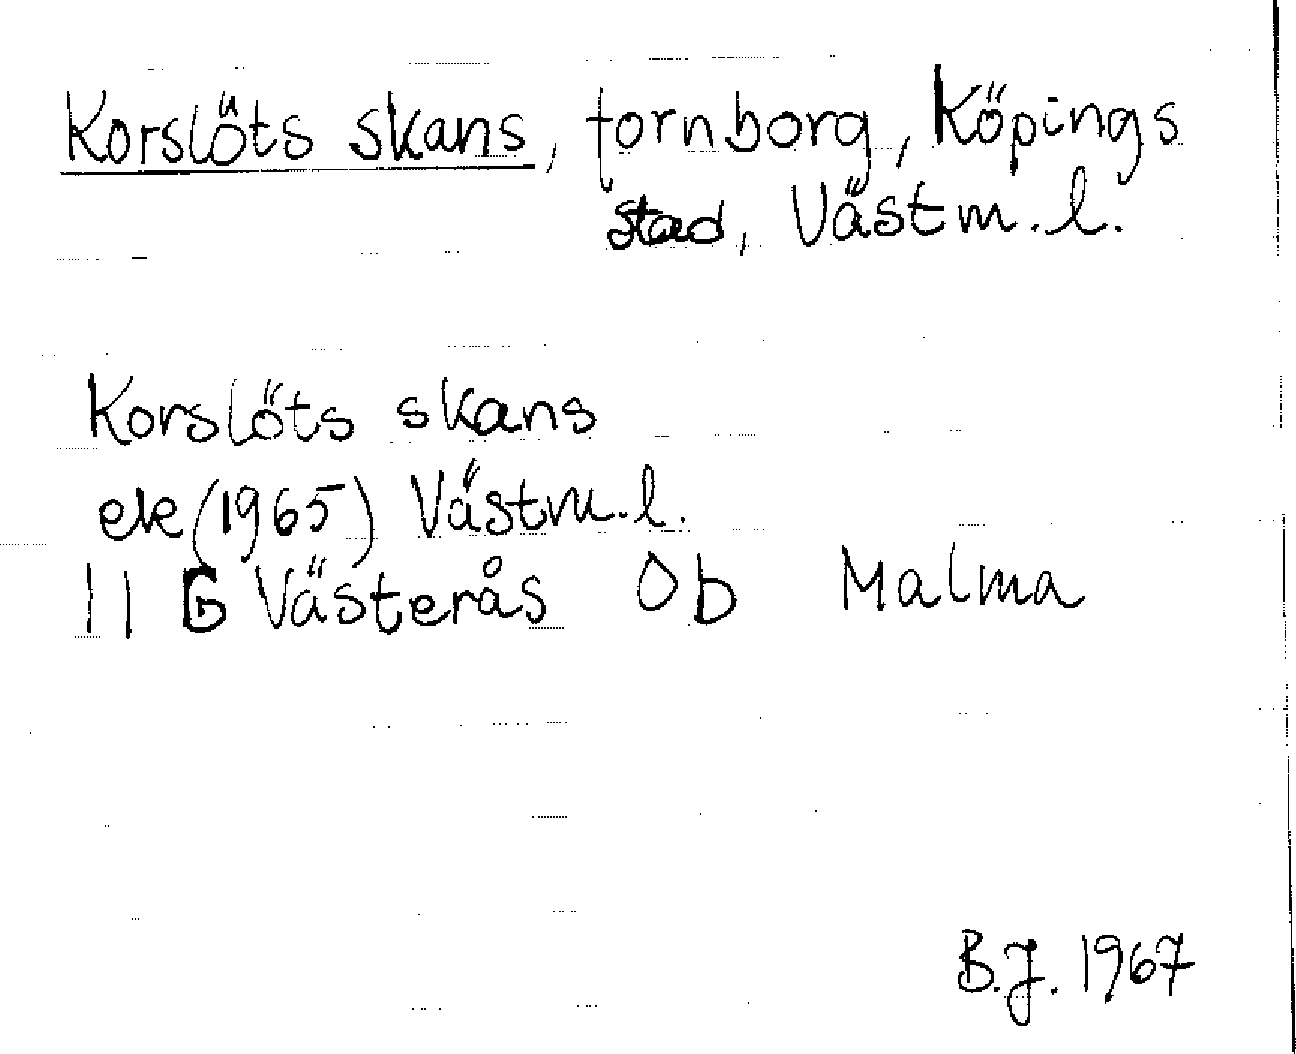 Korslöts skans, fornborg, Köpings
stad, Västm.l.
Korslöts skans
ek (1965) Västm.l.
11 G Västerås 0b Malma
B.J. 1967